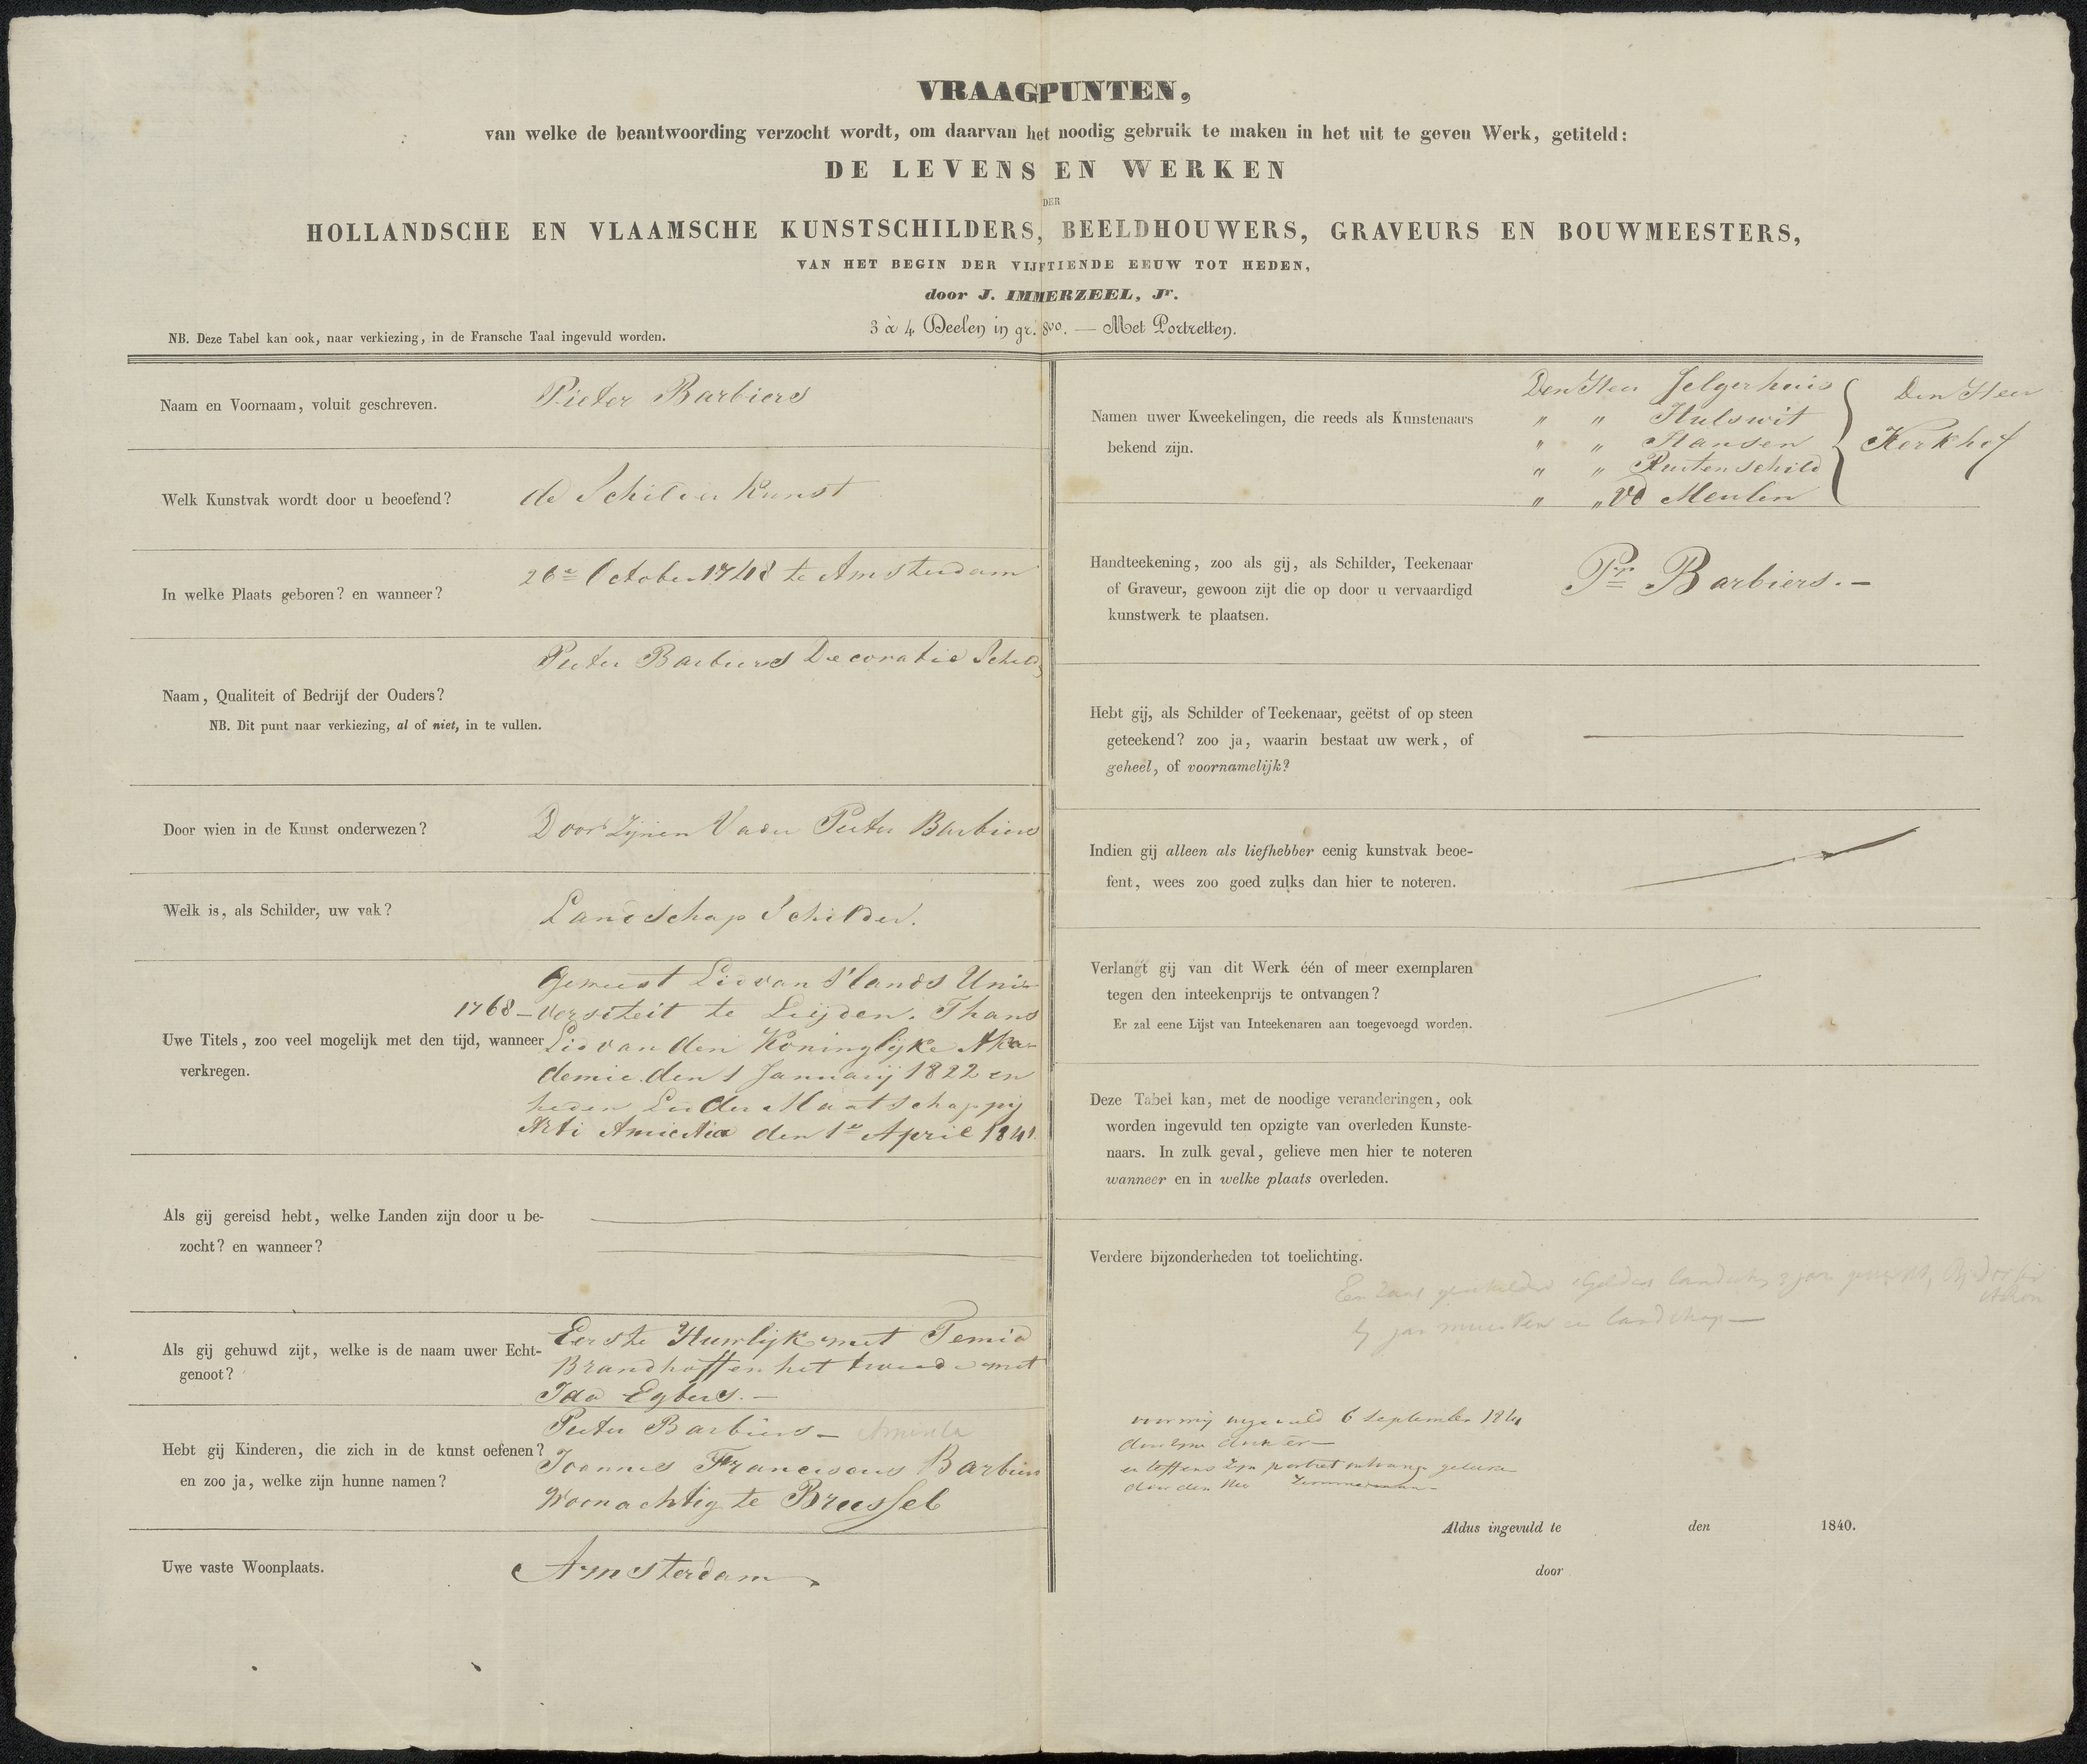 VRAAGPUNTEN,
van welke de beantwoording verzocht wordt, om daarvan het noodig gebruik te maken in het uit te geven Werk, getiteld:
DE LEVENS EN WERKEN
DER
HOLLANDSCHE EN VLAAMSCHE KUNSTSCHILDERS, BEELDHOUWERS, GRAVEURS EN BOUWMEESTERS,
VAN HET BEGIN DER VIJFTIENDE EEUW TOT HEDEN,
door J. IMMERZEEL, Jr.
3 à 4 Deelen in gr. 8vo. — Met Portretten.
NB. Deze Tabel kan ook, naar verkiezing, in de Fransche Taal ingevuld worden.
Naam en Voornaam, voluit geschreven.
Pieter Barbiers
Welk Kunstvak wordt door u beoefend?
de Schilder Kunst
In welke Plaats geboren? en wanneer?
26e October 1748 te Amsterdam
Naam, Qualiteit of Bedrijf der Ouders?
NB. Dit punt naar verkiezing, al of niet, in te vullen.
Pieter Barbiers Decoratie Schild
Door wien in de Kunst onderwezen?
Door Zijnen Vader Pieter Barbiers
Welk is, als Schilder, uw vak?
Landschap Schilder.
Uwe Titels, zoo veel mogelijk met den tijd, wanneer
verkregen.
Geweest Lid van S'lands Uni-
1768 – versiteit te Leijden. Thans
Lid van den Koninglijke Aka-
demie den 1 Januarij 1822 en
heden Lid der Maatschappij
Arti Amicitia den 1e April 1841
Als gij gereisd hebt, welke Landen zijn door u be-
zocht? en wanneer?
Als gij gehuwd zijt, welke is de naam uwer Echt-
genoot?
Eerste Huwlijk met Femia
Brandhoff en het tweede met
Ida Egbers. —
Hebt gij Kinderen, die zich in de kunst oefenen?
en zoo ja, welke zijn hunne namen?
Pieter Barbiers —
Joannes Franciscus Barbiers
Woonachtig te Brussel
Uwe vaste Woonplaats.
Amsterdam
Namen uwer Kweekelingen, die reeds als Kunstenaars
bekend zijn.
Den Heer Jelgerhuis
" " Hulswit
" " Hansen
" " Ruitenschild
" " vd Meulen
Den Heer
Kerkhof
Handteekening, zoo als gij, als Schilder, Teekenaar
of Graveur, gewoon zijt die op door u vervaardigd
kunstwerk te plaatsen.
Pr Barbiers. —
Hebt gij, als Schilder of Teekenaar, geëtst of op steen
geteekend? zoo ja, waarin bestaat uw werk, of
geheel, of voornamelijk?
Indien gij alleen als liefhebber eenig kunstvak beoe-
fent, wees zoo goed zulks dan hier te noteren.
Verlangt gij van dit Werk één of meer exemplaren
tegen den inteekenprijs te ontvangen?
Er zal eene Lijst van Inteekenaren aan toegevoegd worden.
Deze Tabel kan, met de noodige veranderingen, ook
worden ingevuld ten opzigte van overleden Kunste-
naars. In zulk geval, gelieve men hier te noteren
wanneer en in welke plaats overleden.
Verdere bijzonderheden tot toelichting.
Een zaal geschilderd
landschap —
voor mij ingevuld 6 September 1841
door zijn dochter —
en tevens zijn portret
door den Heer
Aldus ingevuld te den 1840.
door